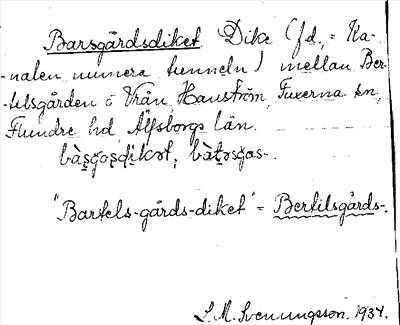 Barsgårdsdiket Dike (fd., = Ka-
-nalen numera tunneln) mellan Ber-
-tilsgården o Vrån, Hanström, Fuxerna sn,
Flundre hd, Älfsborgs län.
"Bartels-gårds-diket" = Bertilsgårds-.
L. M. Svenungsson. 1934.